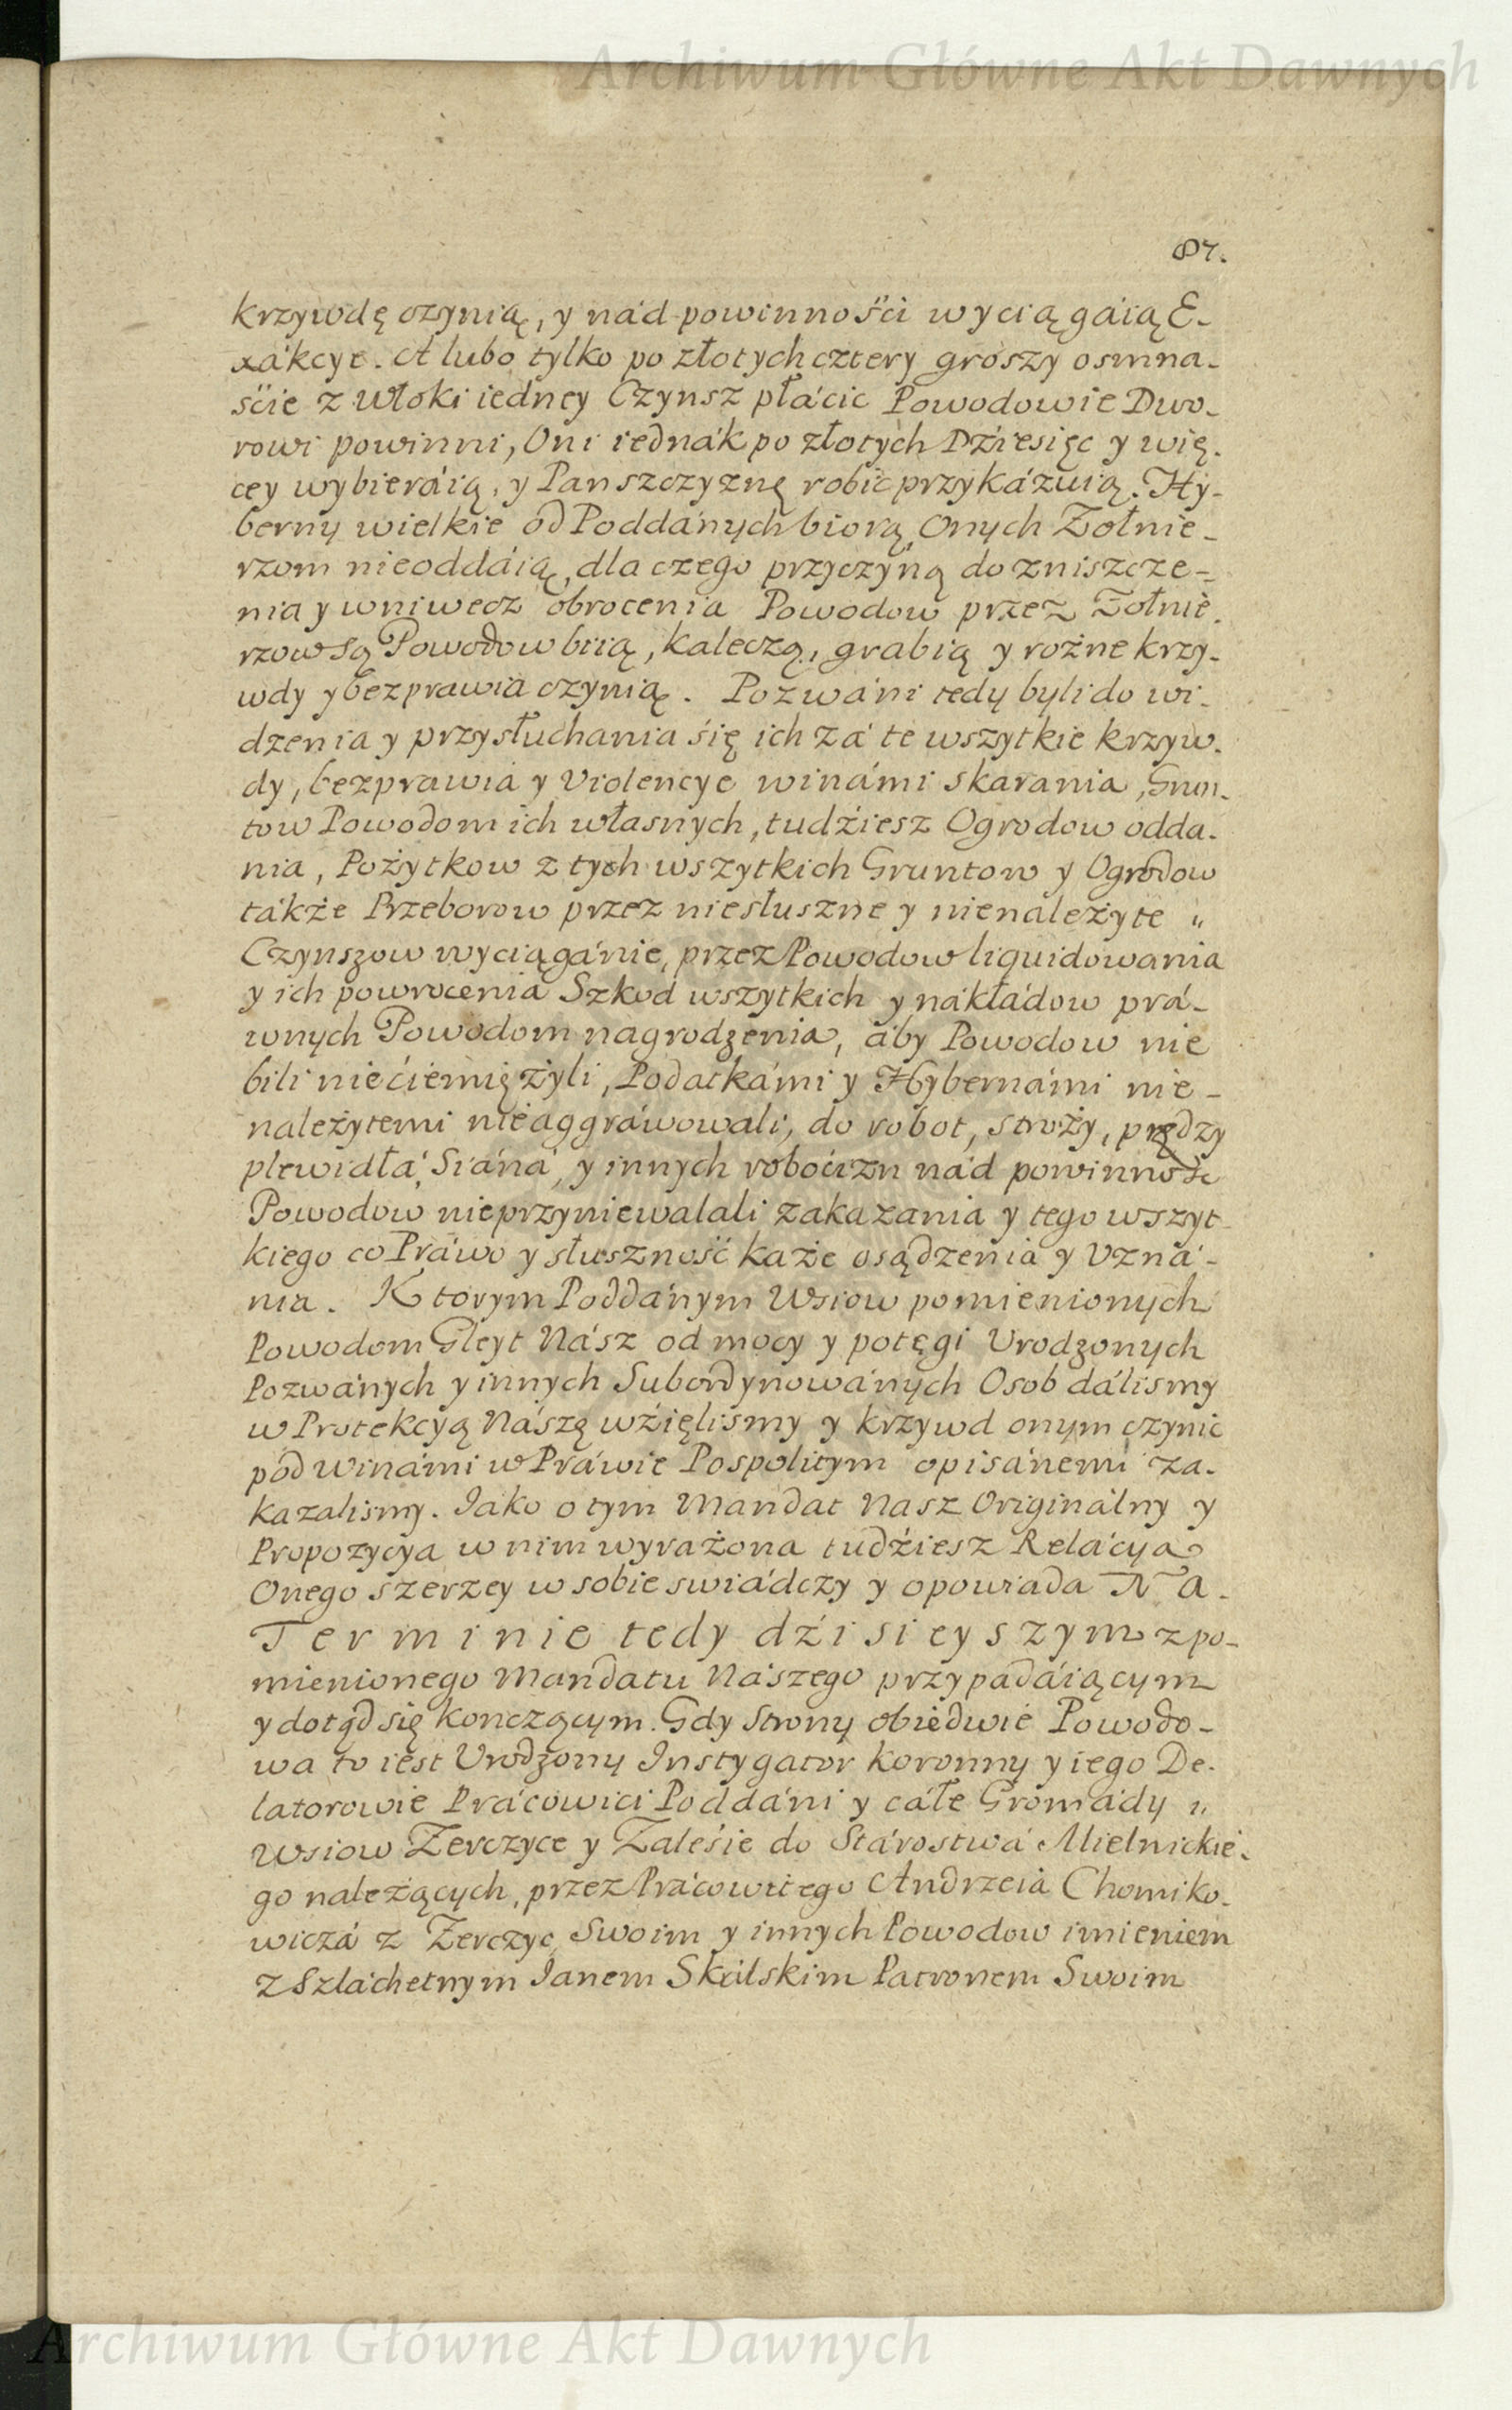 Archiwum Główne Akt Dawnych
87.
krzywdę czynią, y nád powinnośći wyciągáią E-
xákcye. A lubo tylko po złotych cztery groszy osmna-
śćie z Włoki iedney Czynsz płácic Powodowie Dwo-
rowi powinni, Oni iednák po złotych Dźiesięc y wię-
cey wybieráią, y Panszczyznę robic przykázuią. Hy-
berny wielkie od Poddánych biorą, Onych Zołnie-
rzom nieoddáią, dla czego przyczyną do zniszcze-
nia y wniwecz obrocenia Powodow przez Zołnie-
rzow są Powodow biią, kaleczą, grabią y rożne krzy-
wdy y bezprawia czynią. Pozwáni tedy byli do wi-
dzenia y przysłuchania się ich zá te wszytkie krzyw-
dy, bezprawia y Violencye winámi skarania, Grun-
tow Powodom ich własnych, tudźiesz Ogrodow odda-
nia, Pożytkow z tych wszytkich Gruntow y Ogrodow
tákże Przeborow przez niesłuszne y nienależyte "
Czynszow wyciągánie, przez Powodow liquidowania
y ich powrocenia Szkod wszytkich y nákłádow prá-
wnych Powodom nagrodzenia, áby Powodow nie
bili niećiemiężyli, Podatkámi y Hybernámi nie-
należytemi nieaggráwowali, do robot, stroży, przędzy
plewidłá, Siáná, y innych roboćizn nád powinnośc
Powodow nieprzyniewalali zakazania y tego wszyt-
kiego co Práwo y słuszność każe osądzenia y Vzná-
nia. Ktorym Poddánym Wsiow pomienionych
Powodom Gleyt Nász od mocy y potęgi Urodzonych
Pozwánych y innych Subordynowánych Osob dálismy
w Protekcyą Nászę wźięlismy y krzywd onym czynic
pod winámi w Práwie Pospolitym opisánemi za-
kazalismy. Iako o tym Mandat Nasz Originálny y
Propozycya w nim wyrażona tudźiesz Relácya
Onego szerzey w sobie swiádczy y opowiada Na-
Terminie tedy dźisieyszym z po-
mienionego Mandatu Nászego przypadáiącym
y dotąd się konczącym. Gdy Strony obiedwie Powodo-
wa to iest Urodzony Instygator Koronny y iego De-
latorowie Prácowici Poddáni y cáłe Gromády "
Wsiow Zerczyce y Zaleśie do Stárostwá Mielnickie-
go należących, przez Prácowitego Andrzeiá Chomiko-
wiczá z Zerczyc, Swoim y innych Powodow imieniem
z Szláchetnym Ianem Skulskim Patronem Swoim
Archiwum Główne Akt Dawnych